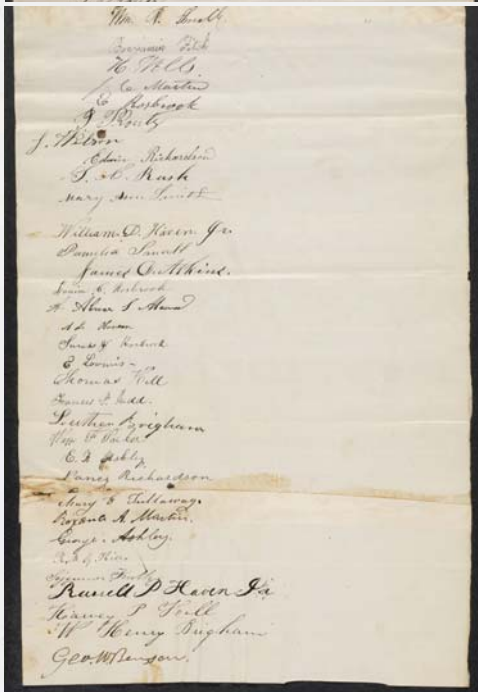 Wm R. Small
Benjamin Fitch
H Wells
C Martin
E Hosbrook
Prouty
J. Wilson
Edwin Richardson
S. C. Rush
Mary Ann Smith
William D. Haven Jr.
Pamelia Small
James O. Atkins.
Hosbrook
Abner S.
Haven
E Loomis
Thomas Hill
Francis P. Judd.
Luther Brigham
Wm F Parker
E. D Ashley
Nancy Richardson
Mary E Tullaway.
Roxana A. Martin.
George Ashley.
Russell P Haven Jr
Harvey P Hill
W Henry Brigham
Geo. W Benson.